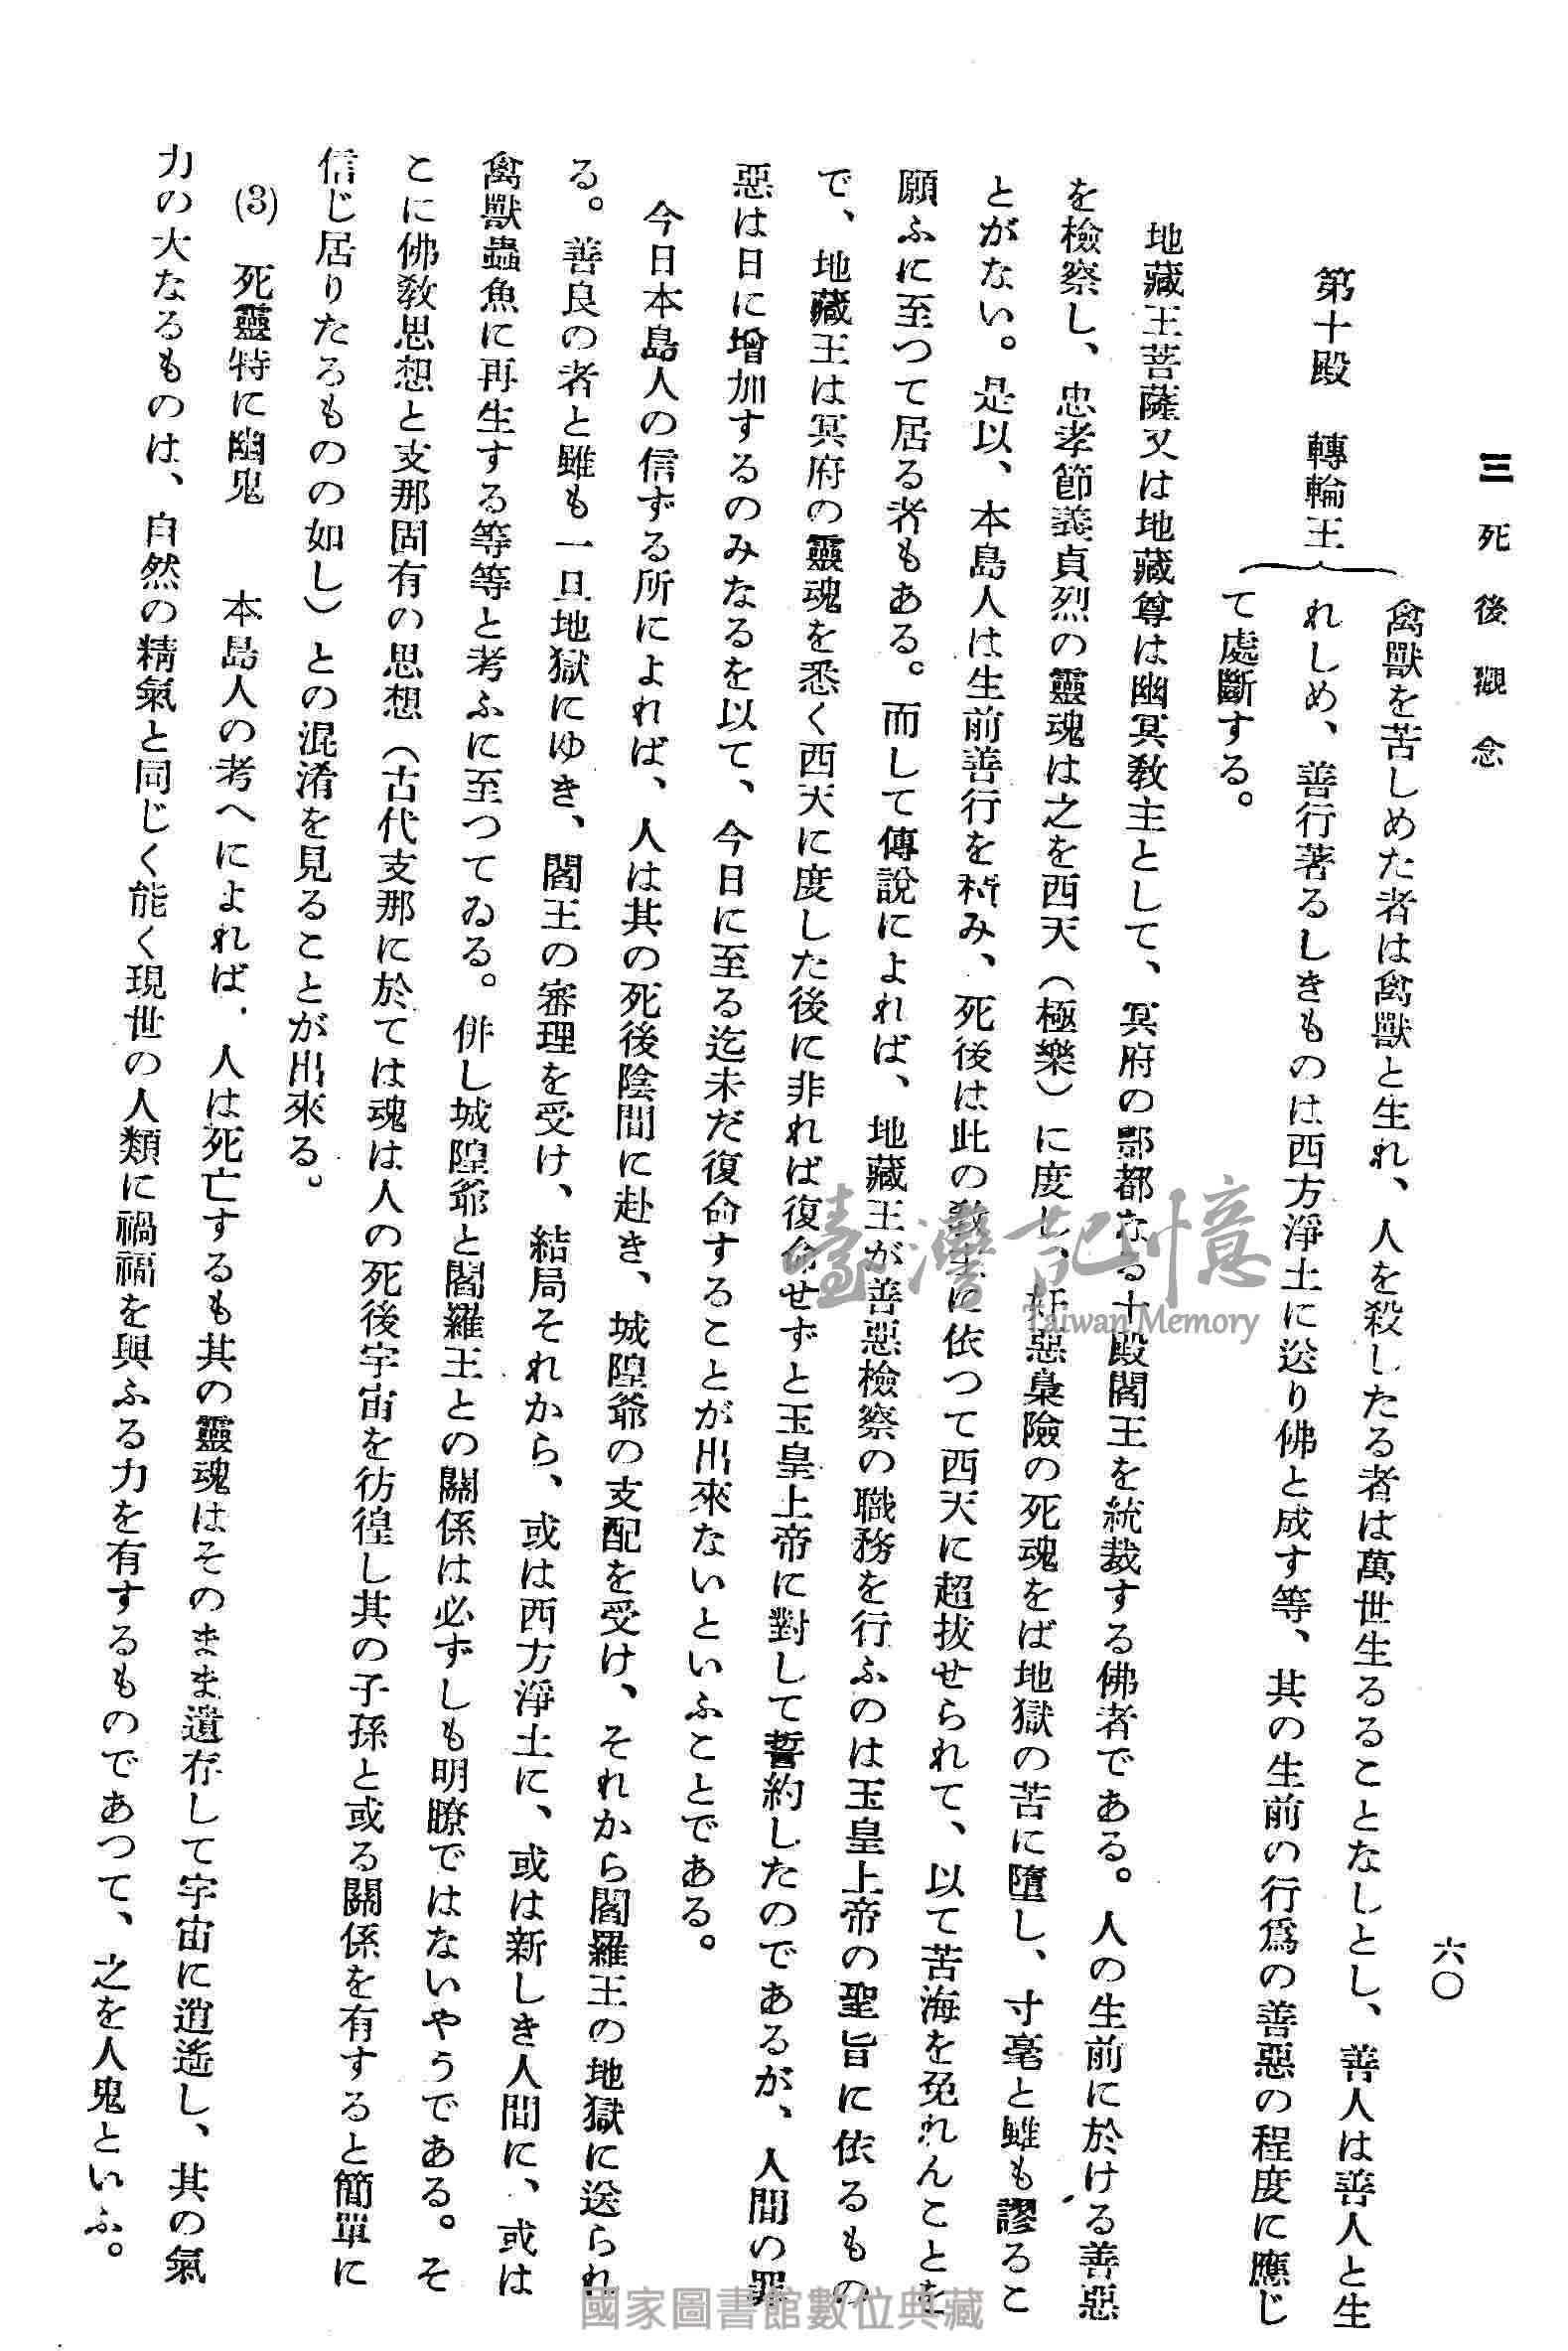 三 死後觀念
六〇
第十殿 轉輪王
禽獸を苦しめた者は禽獸と生れ、人を殺したる者は萬世生るることなしとし、善人は善人と生
れしめ、善行著るしきものは西方淨土に送り佛と成す等、其の生前の行爲の善惡の程度に應じ
て處斷する。
地藏王菩薩又は地藏尊は幽冥敎主として、冥府の鄷都なる十殿閻王を統裁する佛者である。人の生前に於ける善惡
を檢察し、忠孝節義貞烈の靈魂は之を西天（極樂）に度し、奸惡梟險の死魂をば地獄の苦に墮し、寸毫と雖も謬るこ
とがない。是以、本島人は生前善行を積み、死後は此の敎主に依つて西天に超拔せられて、以て苦海を免れんことを
願ふに至つて居る者もある。而して傳說によれば、地藏王が善惡檢察の職務を行ふのは玉皇上帝の聖旨に依るもの
で、地藏王は冥府の靈魂を悉く西天に度した後に非れば復命せずと玉皇上帝に對して誓約したのであるが、人間の罪
惡は日に增加するのみなるを以て、今日に至る迄未だ復命することが出來ないといふことである。
今日本島人の信ずる所によれば、人は其の死後陰間に赴き、城隍爺の支配を受け、それから閻羅王の地獄に送られ
る。善良の者と雖も一旦地獄にゆき、閻王の審理を受け、結局それから、或は西方淨土に、或は新しき人間に、或は
禽獸蟲魚に再生する等等と考ふに至つてゐる。倂し城隍爺と閻羅王との關係は必ずしも明瞭ではないやうである。そ
こに佛敎思想と支那固有の思想（古代支那に於ては魂は人の死後宇宙を彷徨し其の子孫と或る關係を有すると簡單に
信じ居りたろものの如し）との混淆を見ることが出來る。
(3) 死靈特に幽鬼 本島人の考へによれば、人は死亡するも其の靈魂はそのまま遺存して宇宙に逍遙し、其の氣
力の大なるものは、自然の精氣と同じく能く現世の人類に禍福を興ふる力を有するものであつて、之を人鬼といふ。
臺灣記憶
Taiwan Memory
國家圖書館數位典藏